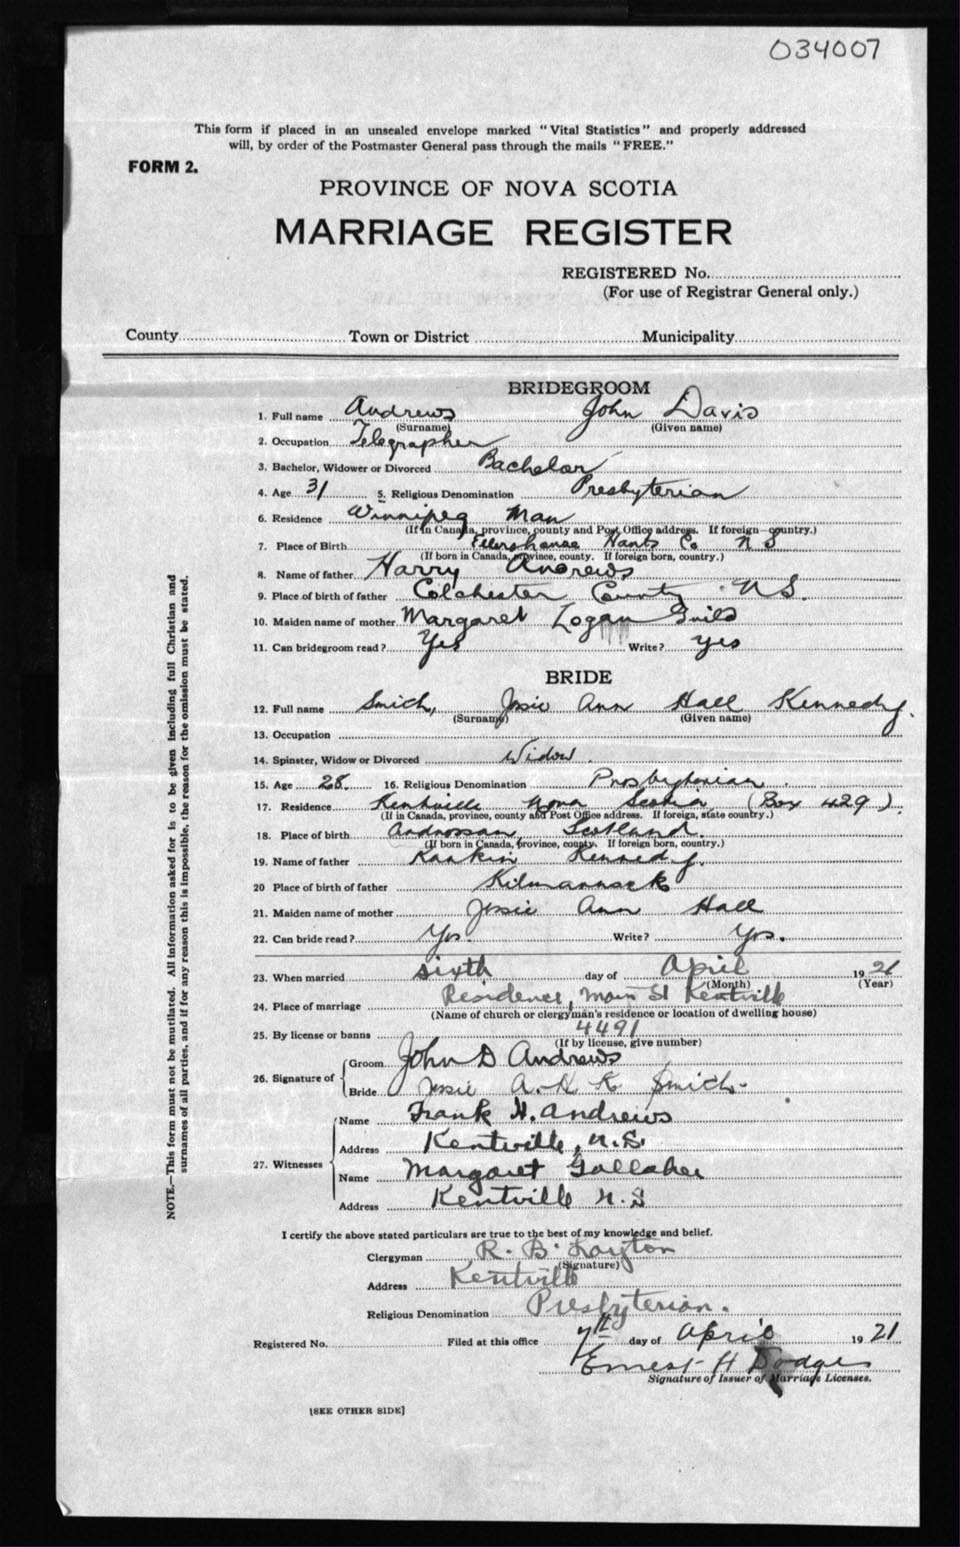 034007
This form if placed in an unsealed envelope marked "Vital Statistics" and properly addressed
will, by order of the Postmaster General pass through the mails "FREE."
FORM 2.
PROVINCE OF NOVA SCOTIA
MARRIAGE REGISTER
REGISTERED No.
(For use of Registrar General only.)
County Town or District Municipality
BRIDEGROOM
1. Full name Andrews John Davis
(Surname) (Given name)
2. Occupation Telegrapher
3. Bachelor, Widower or Divorced Bachelor
4. Age 31 5. Religious Denomination Presbyterian
6. Residence Winnipeg Man
(If in Canada, province, county and Post Office address. If foreign—country.)
7. Place of Birth Hants Co N S
(If born in Canada, province, county. If foreign born, country.)
8. Name of father Harry Andrews
9. Place of birth of father Colchester County N S.
10. Maiden name of mother Margaret Logan Guild
11. Can bridegroom read? Yes Write? yes
BRIDE
12. Full name Smith, Jessie Ann Hall Kennedy.
(Surname) (Given name)
13. Occupation
14. Spinster, Widow or Divorced Widow.
15. Age 28. 16. Religious Denomination Presbyterian.
17. Residence Kentville Nova Scotia (Box 429).
(If in Canada, province, county and Post Office address. If foreign, state country.)
18. Place of birth Ardrossan, Scotland.
(If born in Canada, province, county. If foreign born, country.)
19. Name of father Rankin Kennedy.
20 Place of birth of father
21. Maiden name of mother Jessie Ann Hall
22. Can bride read? Yes. Write? Yes.
23. When married sixth day of April 19 21
(Month) (Year)
24. Place of marriage Residence, Main St Kentville
(Name of church or clergyman's residence or location of dwelling house)
25. By license or banns 4491
(If by license, give number)
26. Signature of
Groom John D Andrews
Bride Jessie A. H. K. Smith.
27. Witnesses
Name Frank H. Andrews
Address Kentville, N.S.
Name Margaret Gallaher
Address Kentville N.S
I certify the above stated particulars are true to the best of my knowledge and belief.
Clergyman R. B. Layton
(Signature)
Address Kentville
Religious Denomination Presbyterian.
Registered No. Filed at this office 7th day of April 19 21
Ernest H Dodge
Signature of Issuer of Marriage Licenses.
[SEE OTHER SIDE]
NOTE.—This form must not be mutilated. All information asked for is to be given including full Christian and
surnames of all parties, and if for any reason this is impossible, the reason for the omission must be stated.